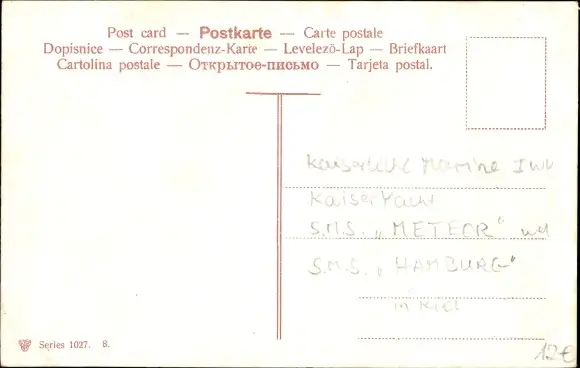 Post card — Postkarte — Carte postale
Dopisnice — Correspondenz-Karte — Levelező-Lap — Briefkaart
Cartolina postale — Открытое-письмо — Tarjeta postal.
Kaiserliche Marine
KaiserYacht
S.M.S. „METEOR" und
S.M.S. „HAMBURG"
in Kiel
Series 1027. 8.
12€